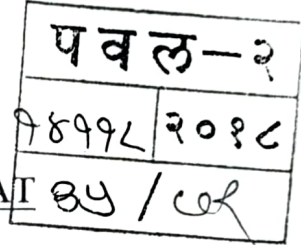 पवल-२
१४११८ २०१८
AT ३५ /